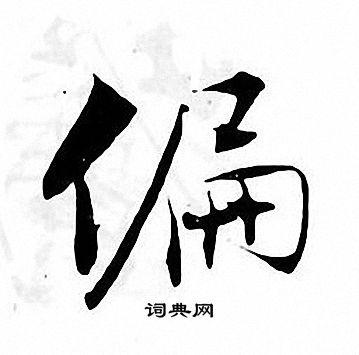 偏
词典网